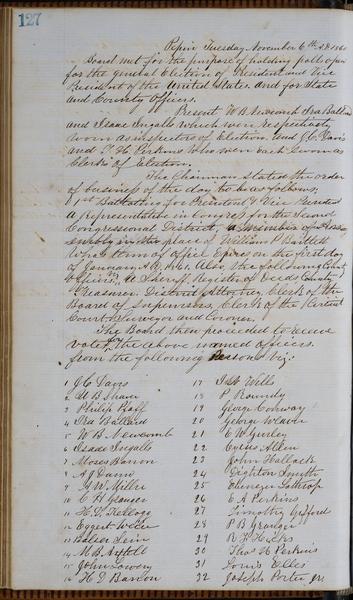 127
Pepin Tuesday November 6th AD 1860
Board met for the purpose of holding poll open
for the general Election of President and Vice
President of the United States, and for State
and County Officers.
Present W B Newcomb Ira Ballard
and Isaac Ingalls which were respectively
sworn as inspectors of Election. and J. C. Davis
and T. H. Perkins who were each sworn as
Clerks of Election.
The Chairman stated the order
of business of the day to be as follows;
1st Ballotting for President & Vice President
a representative in Congress for the Second
Congressional District, a member of As-
sembly in the place of William P Bartlett
whose term of office Expires on the first day
of January A.D. 1861. Also, the following County
Officers, a Sheriff, Register of Deeds County
Treasurer District Attorney, Clerk of the
Board of Supervisors, Clerk of the Circuit
Court Surveyor and Coroner.
The Board then proceeded to receive
votes for the above named officers
from the following Persons Viz:
1 J C Davis
2 U B Shaver
3 Philip Pfaff
4 Ira Ballard
5 W B Newcomb
6 Isaac Ingalls
7 Moses Barron
8 A J
9 Miller
10 C H
11 H. D. Kellogg
12 Eggert
13
14 M B Axtell
15 John Lowery
16 H D Barron
17 Wells
18 P Roundy
19 George Conway
20 George Weaver
21 E W Gurley
22 Cyrus Allen
23 John Hallack
24 Dighton Smith
25 Ebenezer Lathrop
26 E A Perkins
27 Timothy Gifford
28 P B Granger
29 R Z Hicks
30 Thos H Perkins
31 Elles
32 Joseph Porter jr